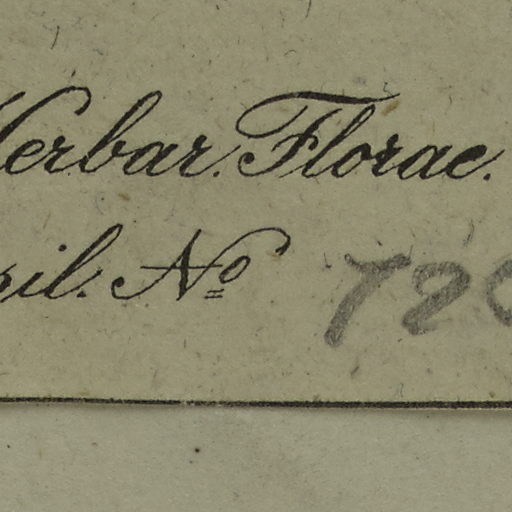 Herbar. Florae.
il. No 720